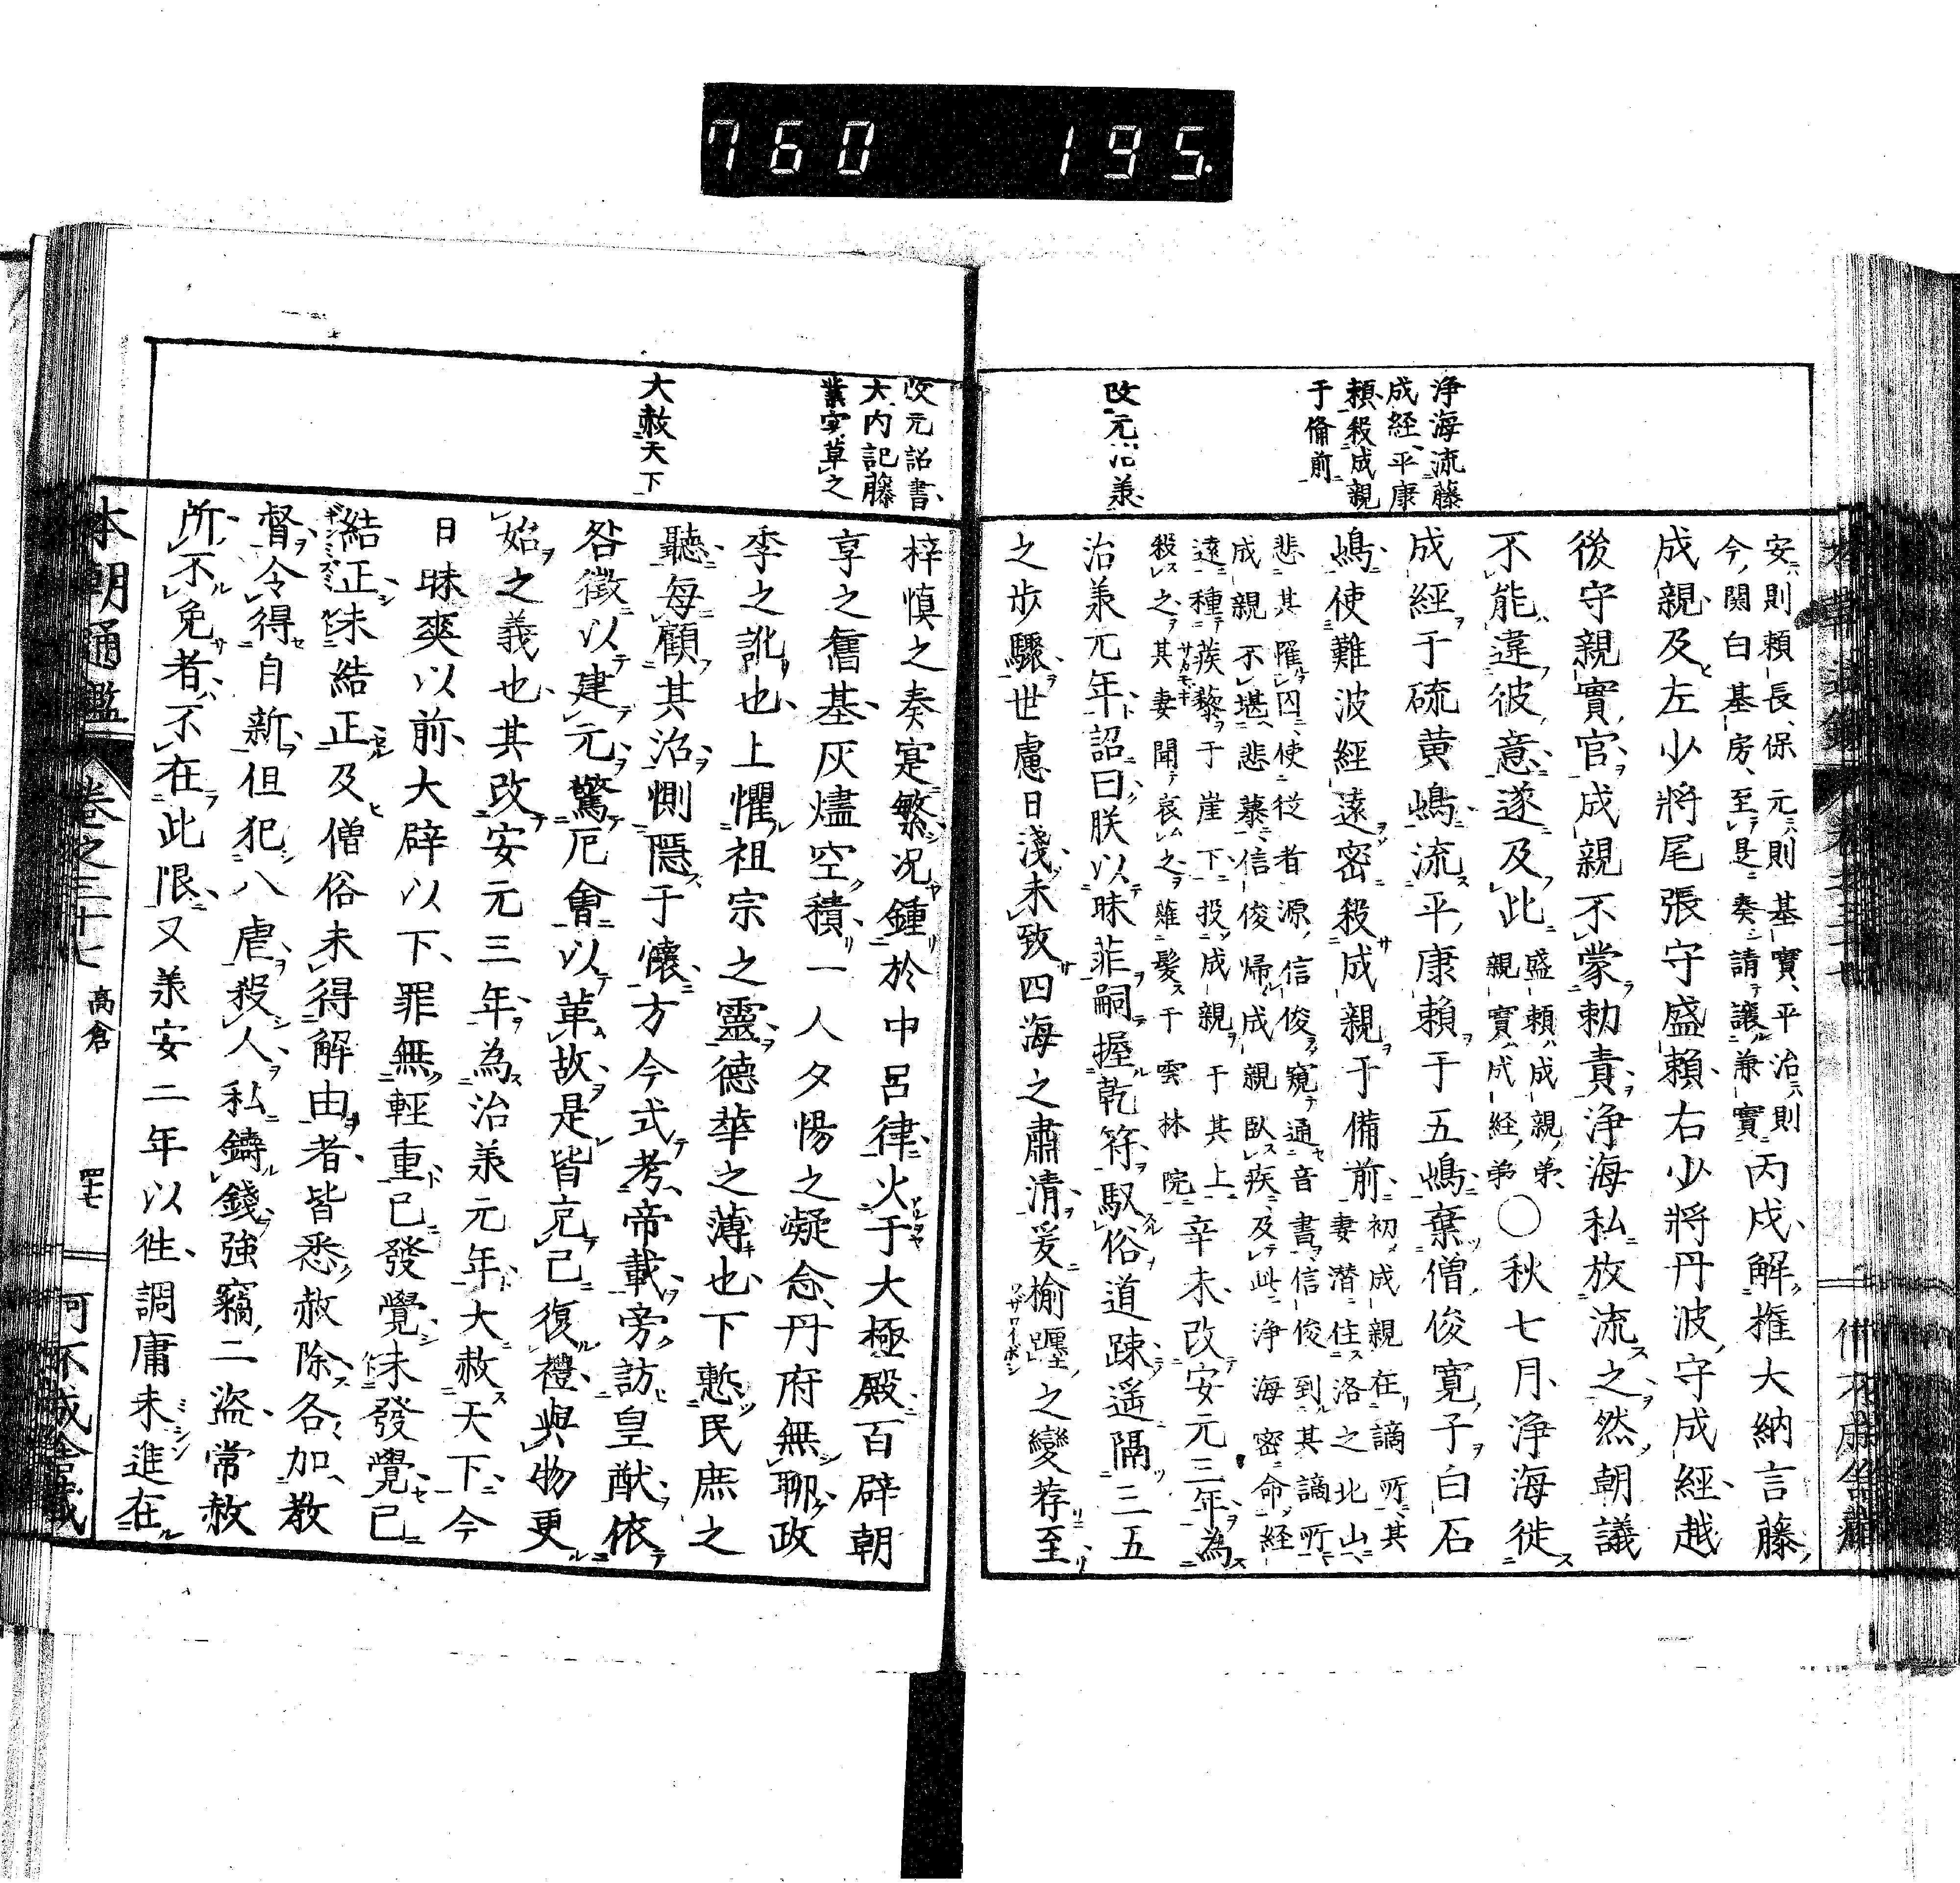 760 195.
浄海流藤
成経平康
頼殺成親
于備前
改元治承
安則頼長保元則基實平治則
今関白基房至是奏請譲兼實
丙戌解権大納言藤
成親及左少将尾張守盛頼右少将丹波守成経越
後守親實官成親不蒙勅責浄海私放流之然朝議
不能違彼意遂及此
盛頼成親弟
親實成経弟
○秋七月浄海徙
成経于硫黄嶋流平康頼于五嶋棄僧俊寛子白石
嶋使難波經遠密殺成親于備前
初成親在謫所其
妻潜住洛之北山
悲其罹囚使從者源信俊窺通音書信俊到其謫所
成親不堪悲慕信俊帰成親臥疾及此浄海密命経
遠種蒺藜于崖下投成親于其上
殺之其妻聞哀之薙髪于雲林院
辛未改安元三年為
治承元年詔曰朕以昧菲嗣握乾符馭俗道踈遥隔三五
之歩驟世慮日淺未致四海之肅清爰楡躔之變荐至
改元詔書
大内記藤
業実草之
大赦天下
梓慎之奏寔繁况鍾於中呂律火于大極殿百辟朝
享之舊基灰燼空積一人夕惕之凝念丹府無聊政
季之訛也上懼祖宗之靈德華之薄也下慙民庶之
聽每顧其治惻隠于懐方今式考帝載旁訪皇猷依
咎徴以建元驚厄會以革故是皆克己復禮與物更
始之義也其改安元三年為治承元年大赦天下今
日昧爽以前大辟以下罪無輕重已發覺未發覺已
結正未結正及僧俗未得解由者皆悉赦除各加教
督令得自新但犯八虐殺人私鑄錢強竊二盗常赦
所不免者不在此限又承安二年以徃調庸未進在
本朝通鑑 卷之三十七 高倉 四七 可不成舎蔵